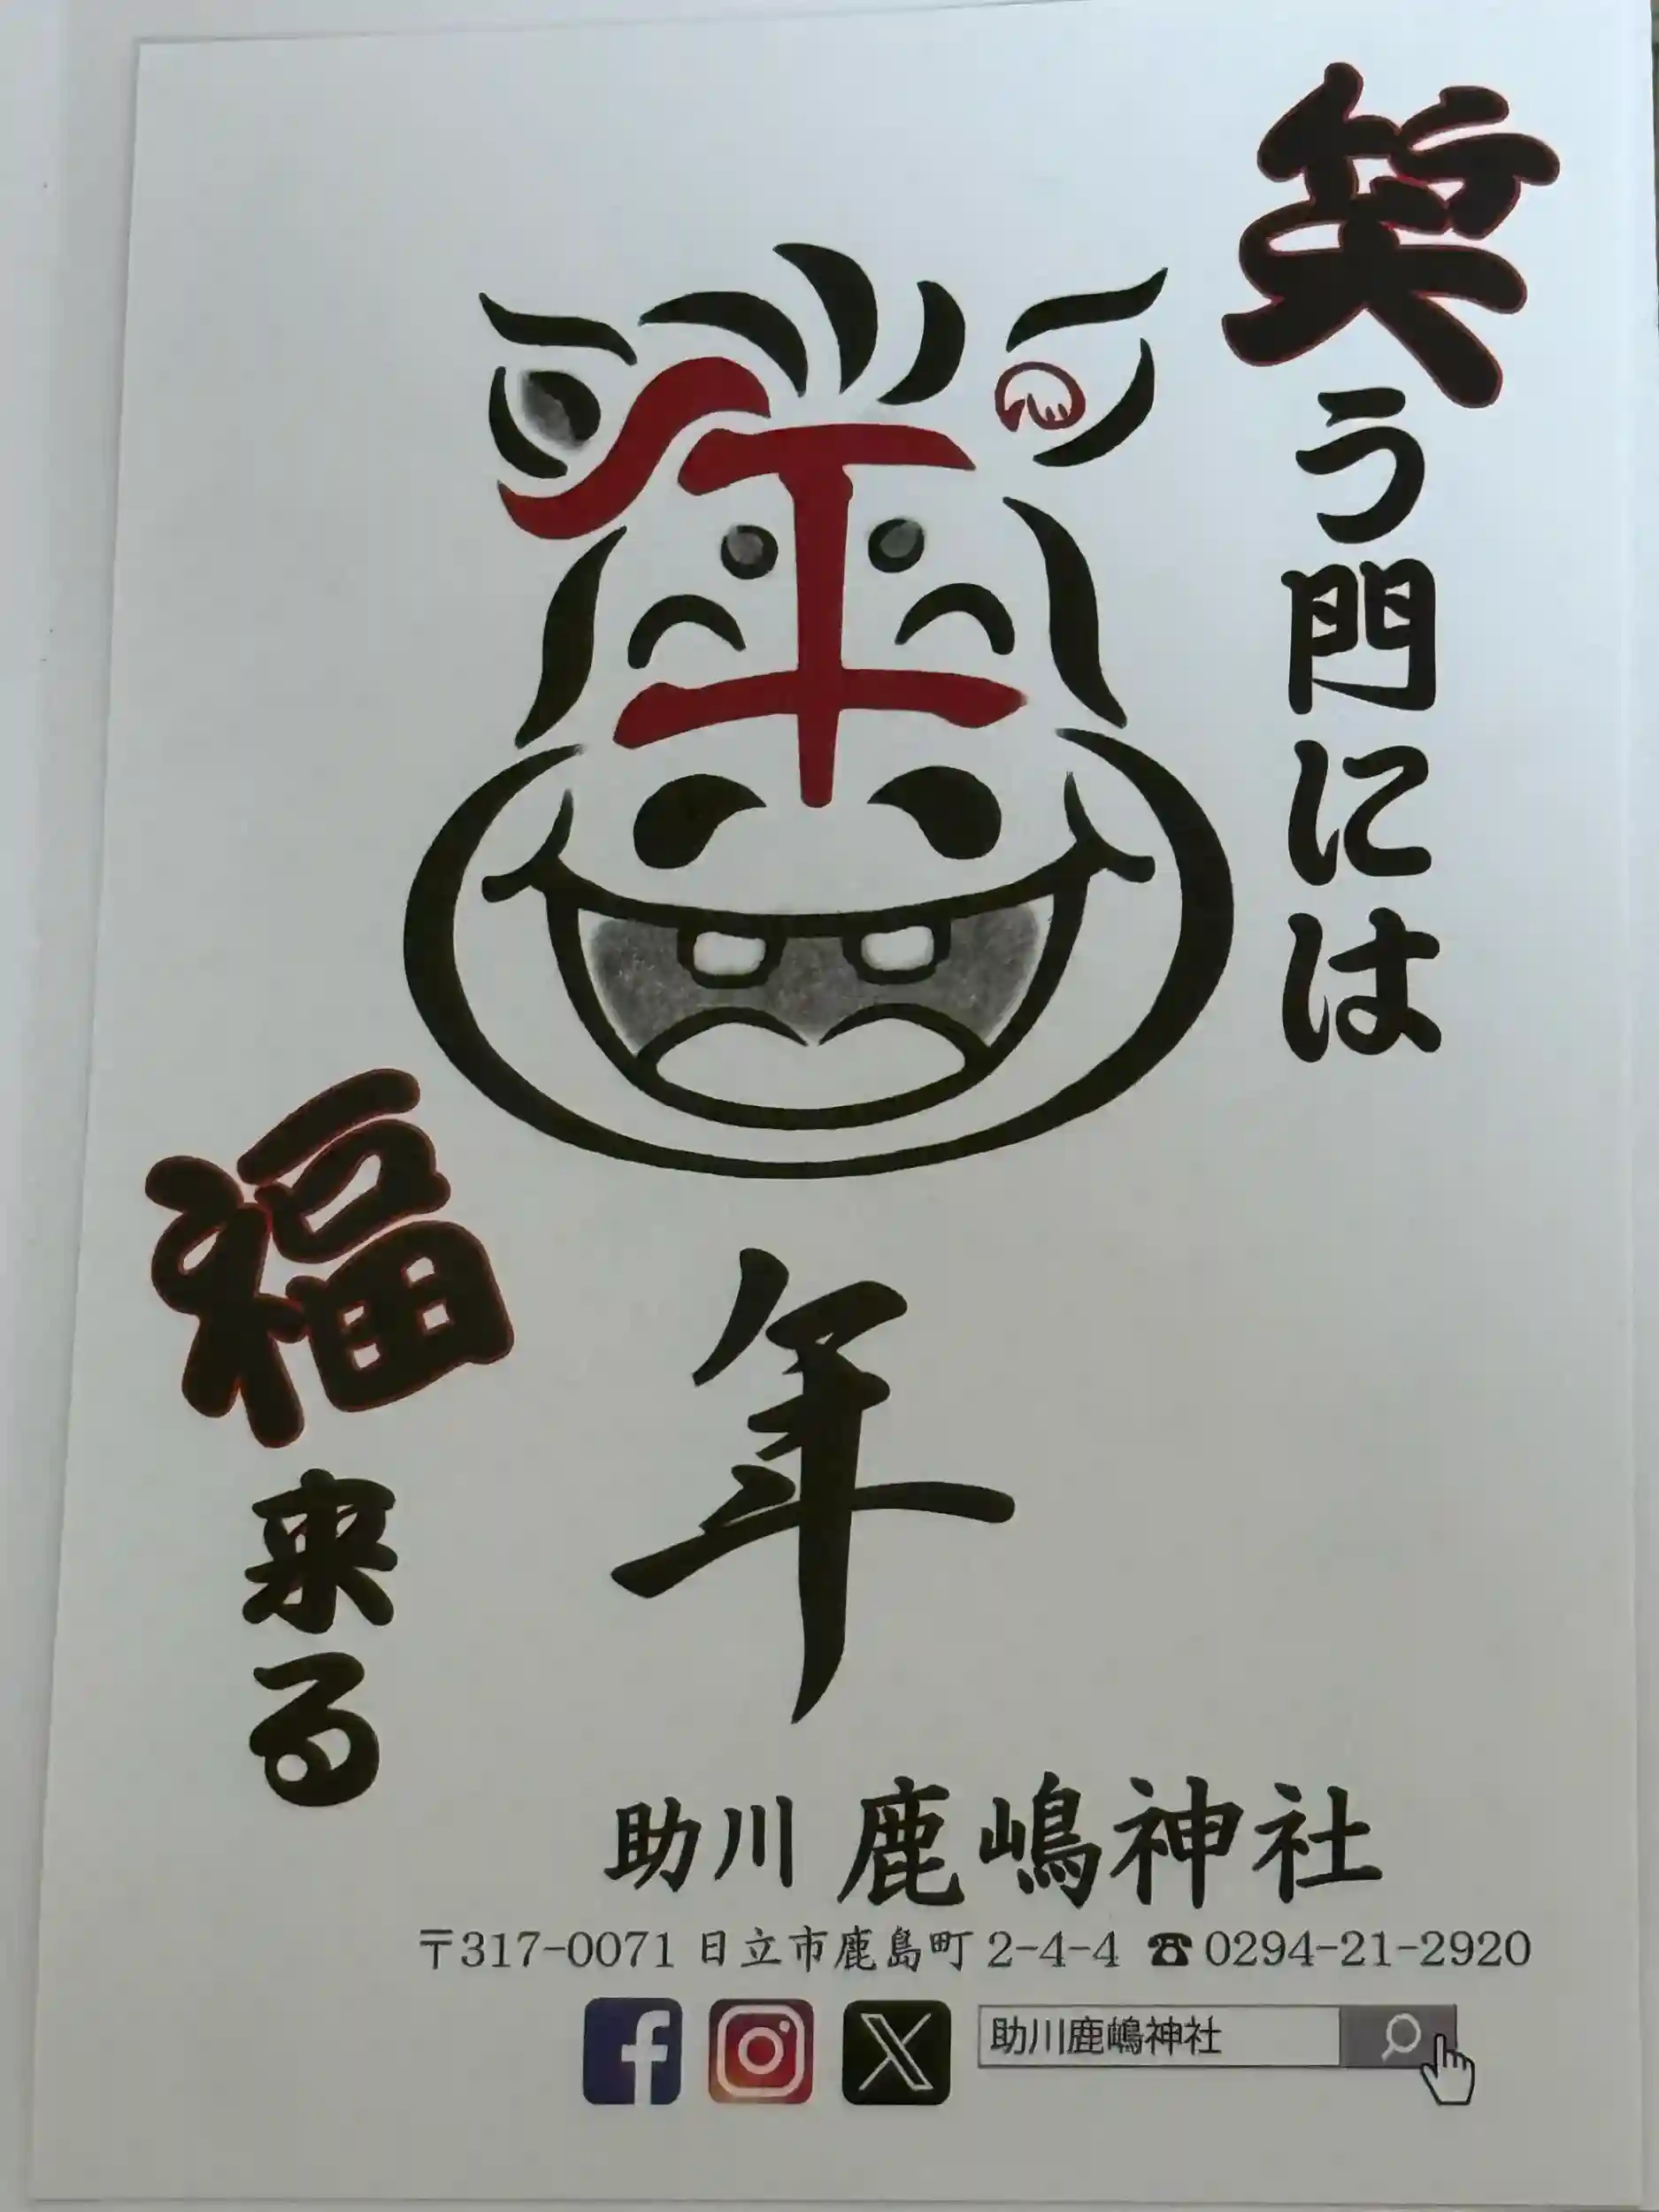 笑う門には
福来る
午
年
助川 鹿嶋神社
〒317-0071 日立市鹿島町 2-4-4 ☎0294-21-2920
助川鹿嶋神社